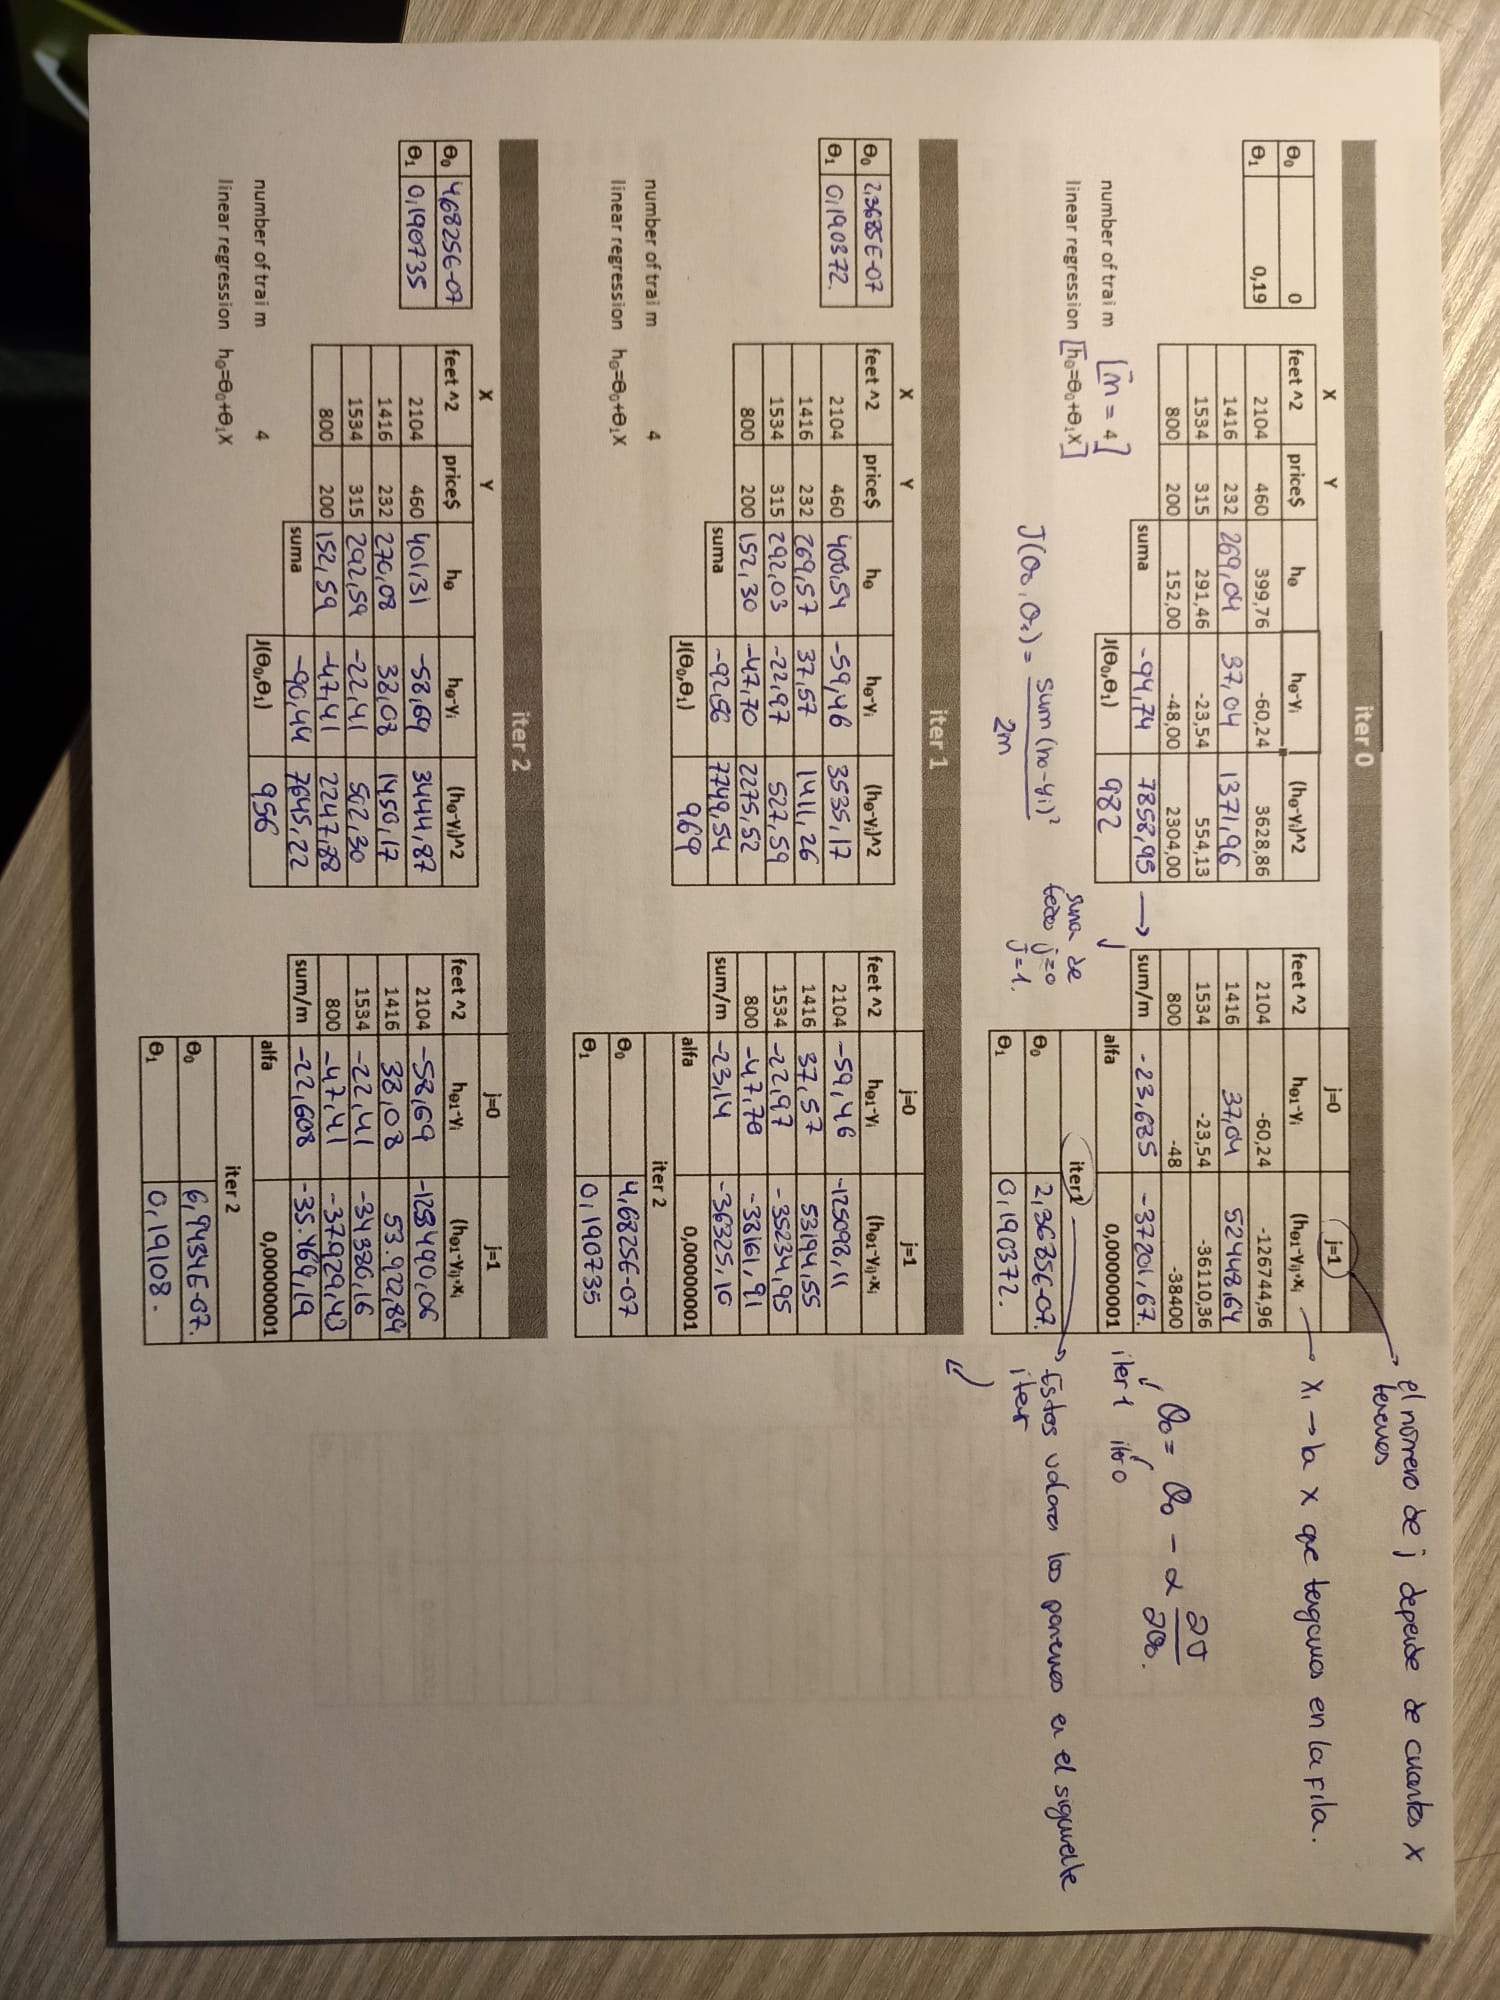 iter 0
θ₀ 0
θ₁ 0,19
X Y
feet ^2 price$ hθ hθ-yᵢ (hθ-yᵢ)^2
2104 460 399,76 -60,24 3628,86
1416 232 269,04 37,04 1371,96
1534 315 291,46 -23,54 554,13
800 200 152,00 -48,00 2304,00
suma -94,74 7858,95 →
J(θ₀,θ₁) 982
number of trai m [m = 4]
linear regression [hθ=θ₀+θ₁X]
J(θ₀, θ₁) = sum (hθ-yi)²
2m
suma de
j=0
j=1.
j=0 j=1
feet ^2 hθ1-yᵢ (hθ1-yᵢ)·xᵢ
2104 -60,24 -126744,96
1416 37,04 52448,64
1534 -23,54 -36110,36
800 -48 -38400
sum/m -23,685 -37201,67.
alfa 0,00000001
iter1
θ₀ 2,3685E-07.
θ₁ 0,190372.
el número de j depende de cuantos x
tenemos
x₁ → la x que tengamos en la fila.
θ₀ = θ₀ - α ∂J
∂θ₀.
iter 1 iter 0
Estos valores los ponemos en el siguiente
iter
iter 1
θ₀ 2,3685E-07
θ₁ 0,190372.
X Y
feet ^2 price$ hθ hθ-yᵢ (hθ-yᵢ)^2
2104 460 400,54 -59,46 3535,17
1416 232 269,57 37,57 1411,26
1534 315 292,03 -22,97 527,59
800 200 152,30 -47,70 2275,52
suma -92,56 7749,54
J(θ₀,θ₁) 969
number of trai m 4
linear regression hθ=θ₀+θ₁X
j=0 j=1
feet ^2 hθ1-yᵢ (hθ1-yᵢ)·xᵢ
2104 -59,46 -125098,11
1416 37,57 53194,55
1534 -22,97 -35234,95
800 -47,70 -38161,91
sum/m -23,14 -36325,10
alfa 0,00000001
iter 2
θ₀ 4,6825E-07
θ₁ 0,190735
iter 2
θ₀ 4,6825E-07
θ₁ 0,190735
X Y
feet ^2 price$ hθ hθ-yᵢ (hθ-yᵢ)^2
2104 460 401,31 -58,69 3444,87
1416 232 270,08 38,08 1450,17
1534 315 292,59 -22,41 502,30
800 200 152,59 -47,41 2247,88
suma -90,44 7645,22
J(θ₀,θ₁) 956
number of trai m 4
linear regression hθ=θ₀+θ₁X
j=0 j=1
feet ^2 hθ1-yᵢ (hθ1-yᵢ)·xᵢ
2104 -58,69 -123490,06
1416 38,08 53.922,84
1534 -22,41 -34380,16
800 -47,41 -37.929,43
sum/m -22,608 -35.469,19
alfa 0,00000001
iter 2
θ₀ 6,9434E-07.
θ₁ 0,191108.